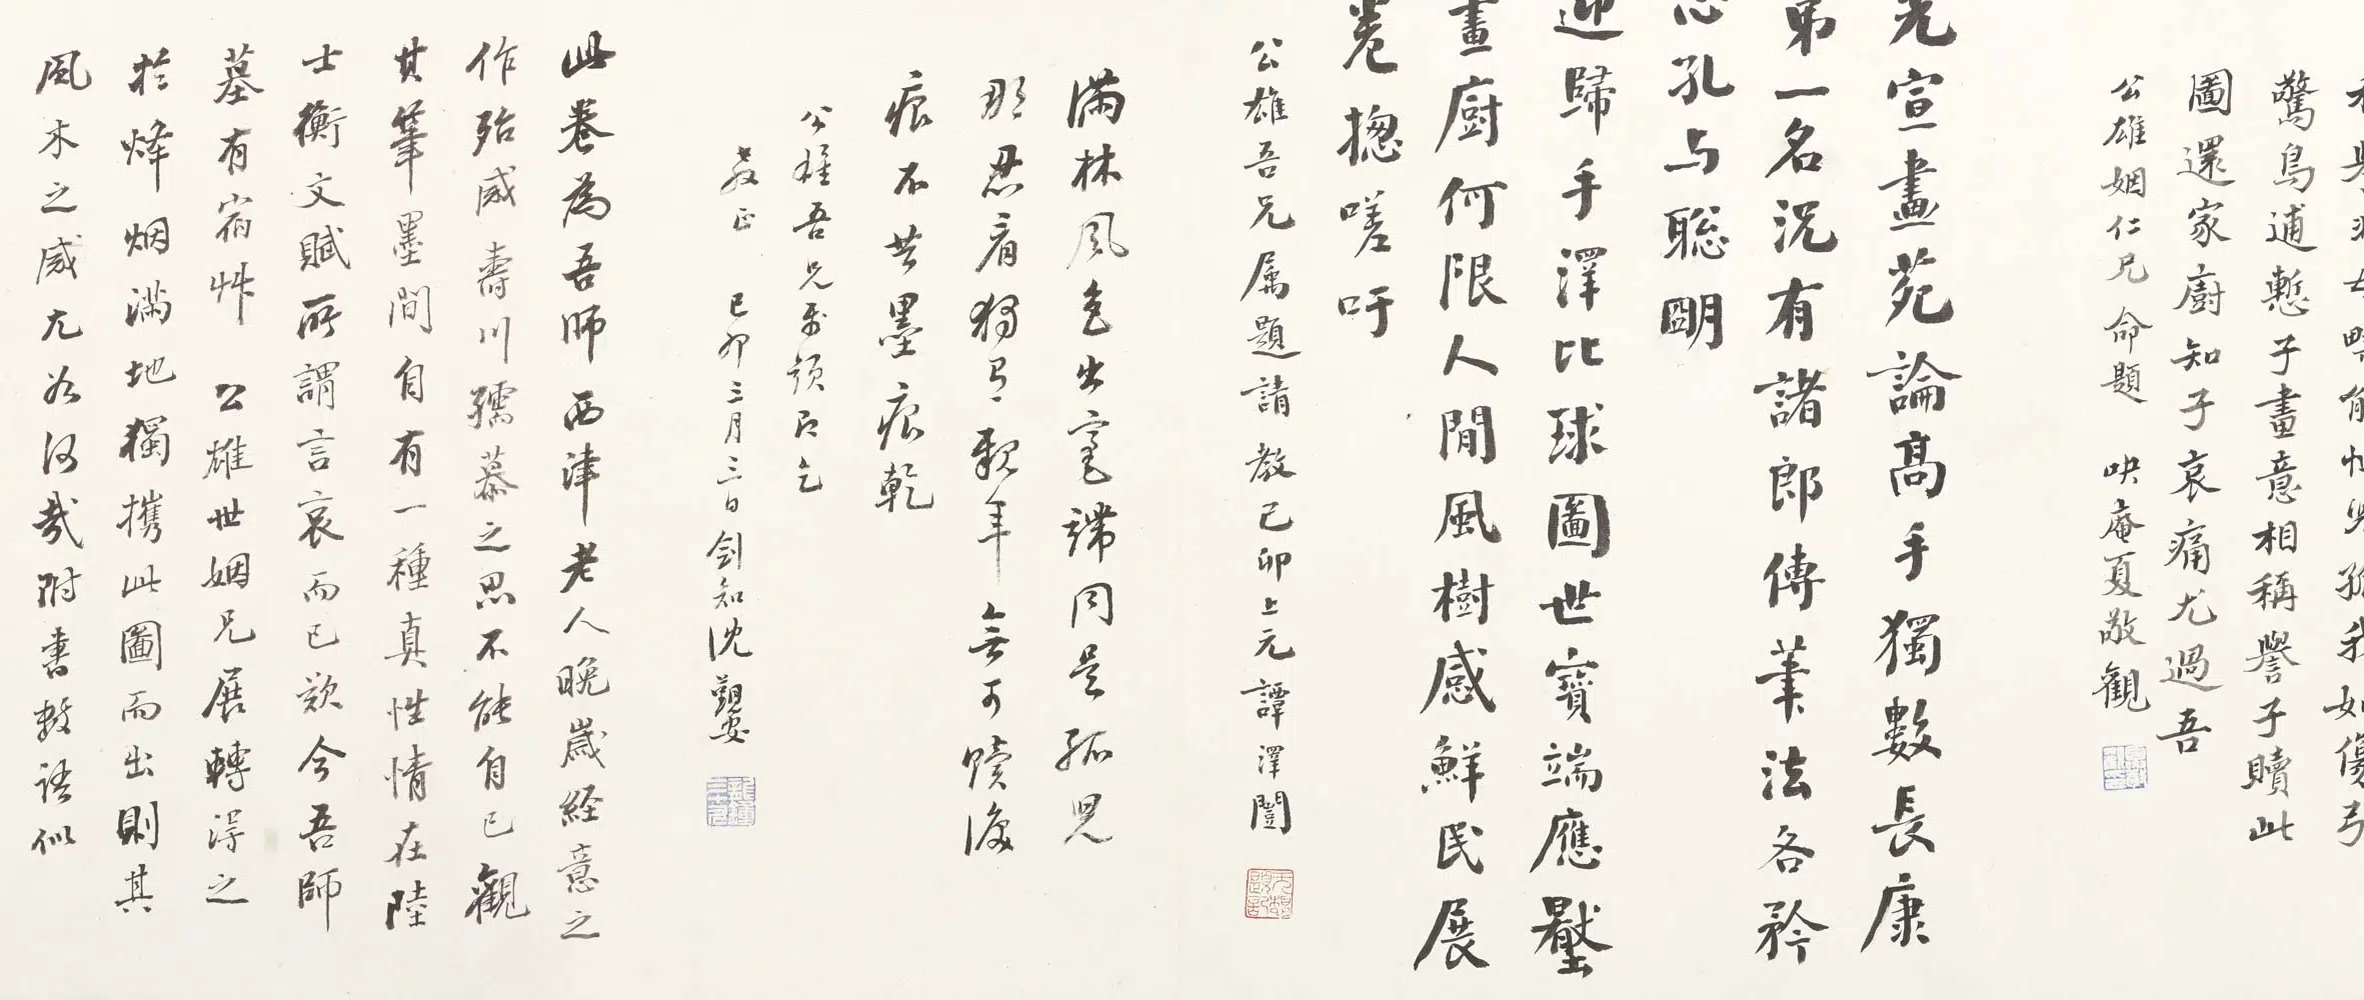 驚鳥逋慙子畫意相稱譽子贖此
圖還家廚知子哀痛尤過吾
公雄姻仁兄命題 吷庵夏敬觀
光宣畫苑論高手獨數長康
第一名況有諸郎傳筆法各矜
孔与聡明
迎歸手澤比球圖世寶端應壓
畫廚何限人間風樹感鮮民展
卷摠嗟吁
公雄吾兄属題請教己卯上元譚澤闓
滿林風色出豪端同是孤兒
那忍看獨有親年無可贖淚
痕不共墨痕乾
公雄吾兄屬題即乞
教正 己卯三月三日劍知沈覲安
此卷為吾師西津老人晚歲経意之
作殆感壽川孺慕之思不能自已觀
其筆墨間自有一種真性情在陸
士衡文賦所謂言哀而已歎今吾師
墓有宿艸 公雄世姻兄展轉得之
於烽烟滿地獨攜此圖而出則其
風木之感尤為何哉附書数語似